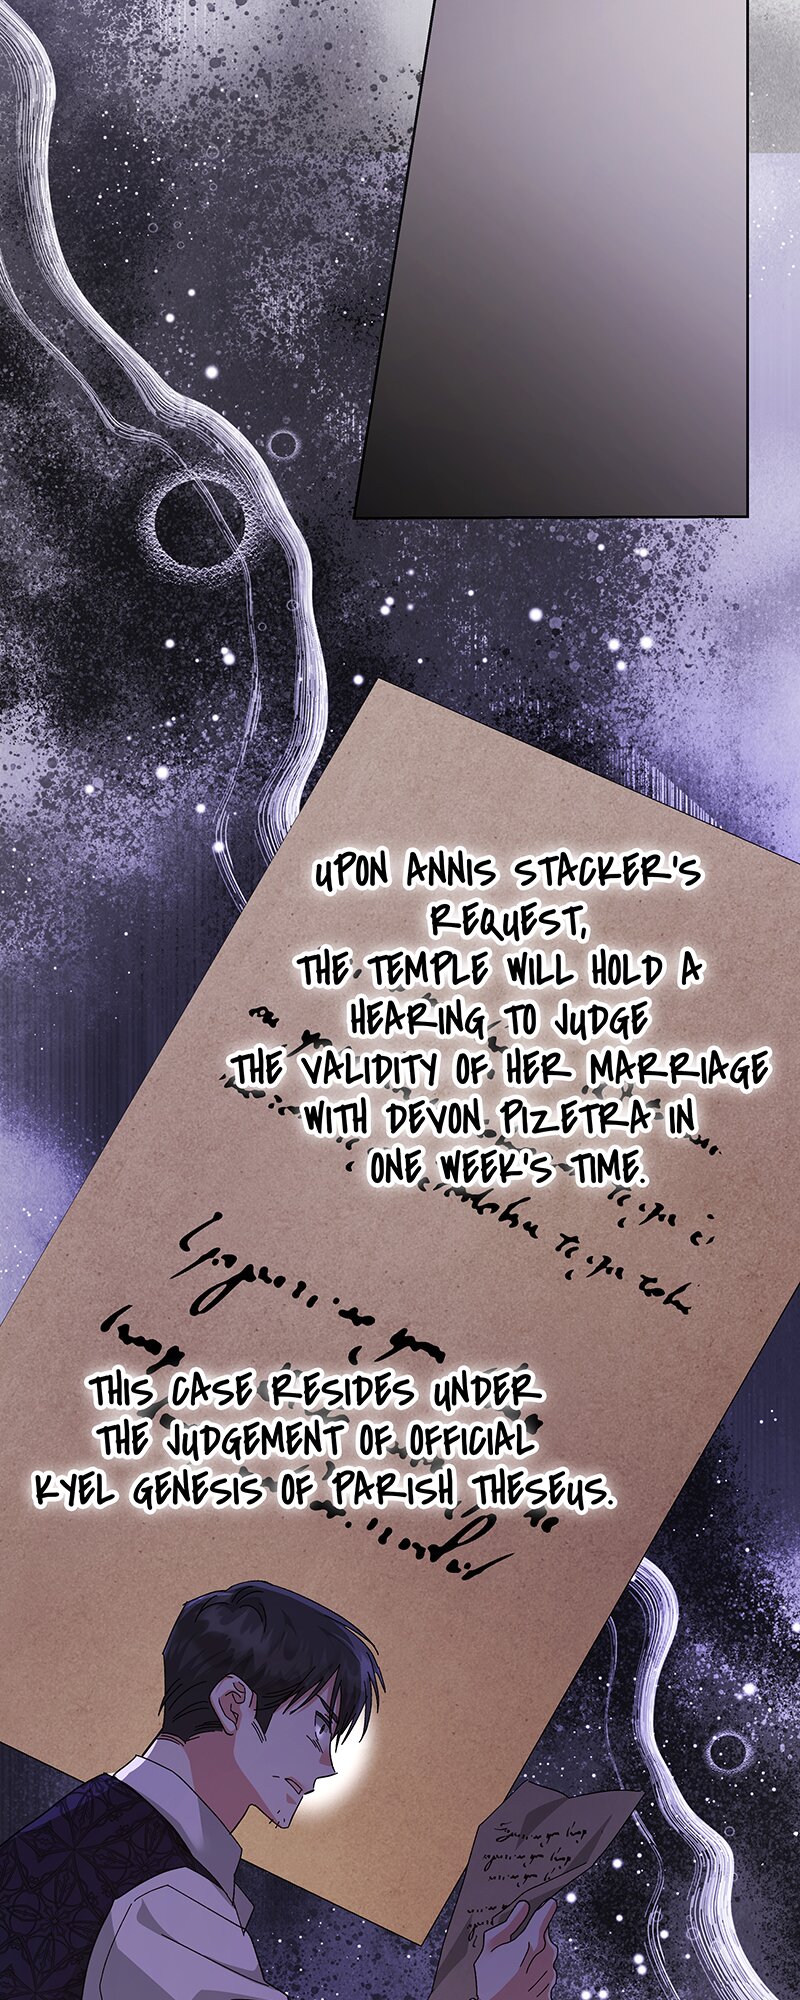 UPON ANNIS STACKER'S
REQUEST,
THE TEMPLE WILL HOLD A
HEARING TO JUDGE
THE VALIDITY OF HER MARRIAGE
WITH DEVON PIZETRA IN
ONE WEEK'S TIME.
THIS CASE RESIDES UNDER
THE JUDGEMENT OF OFFICIAL
KYEL GENESIS OF PARISH THESEUS.